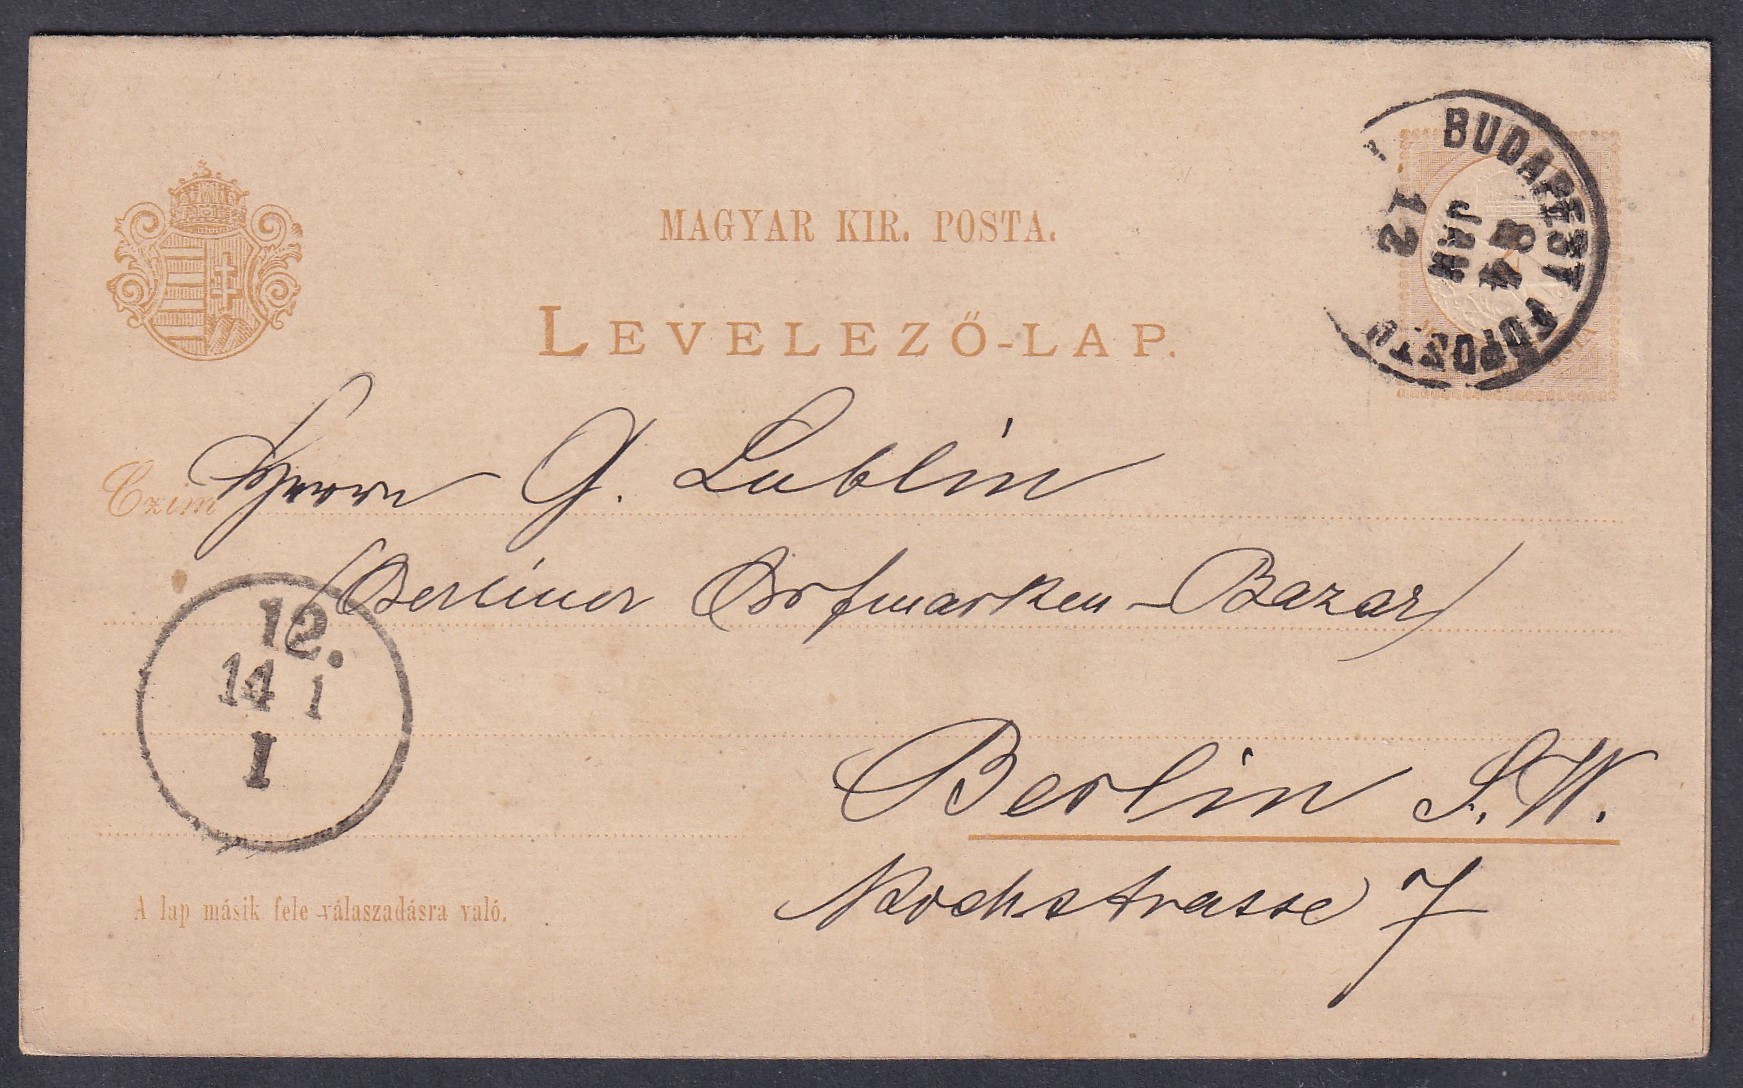 MAGYAR KIR. POSTA.
LEVELEZŐ-LAP.
BUDAPEST FŐPOSTA
84
JAN
12
Czim
Herrn G. Lublin
(Berliner Briefmarken-Bazar)
12.
14 1
I
Berlin S.W.
Kochstrasse 7
A lap másik fele válaszadásra való.